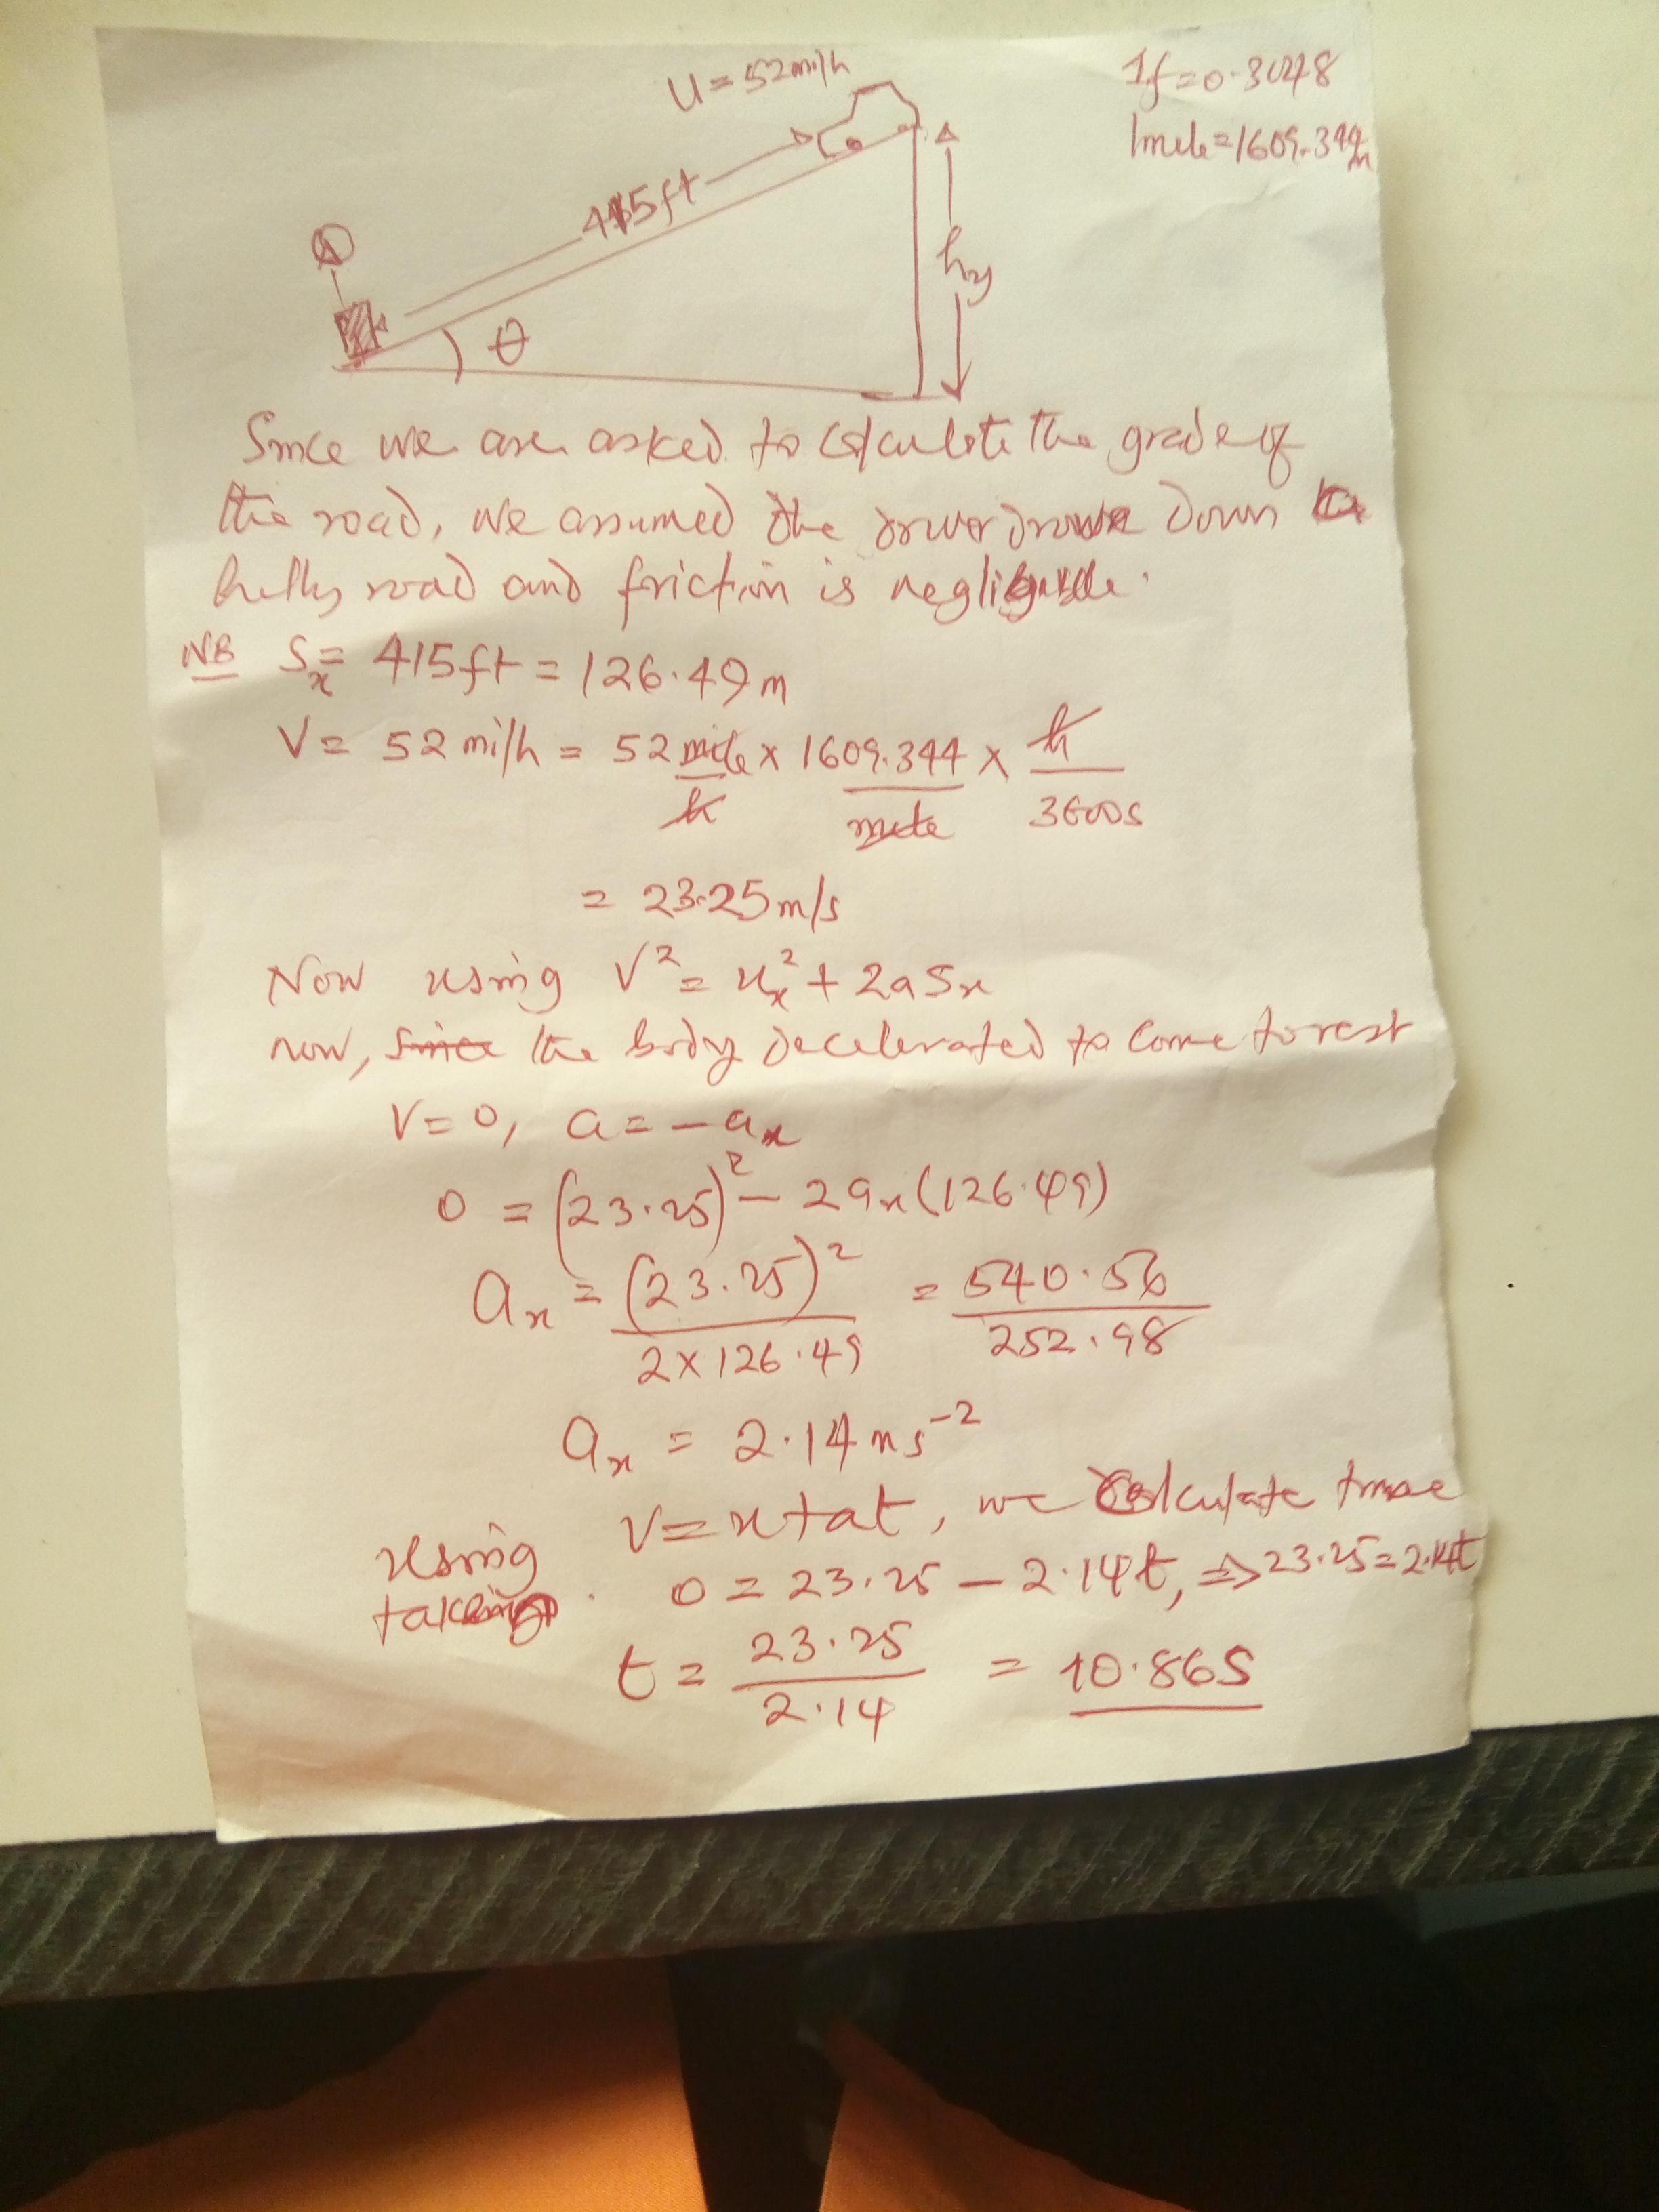 U = 52mi/h
1f = 0.3048
1mile = 1609.344m
415ft
hy
θ
Since we are asked to calculate the grade of
the road, we assumed the driver drove down a
hilly road and friction is negligible.
NB Sx = 415ft = 126.49m
V = 52 mi/h = 52 mile/h × 1609.344/mile × h/3600s
= 23.25m/s
Now using V² = ux² + 2aSx
now, since the body decelerated to come to rest
V=0, a = -ax
0 = (23.25)² - 2ax(126.49)
ax = (23.25)²/2×126.49 = 540.56/252.98
ax = 2.14ms⁻²
using V=u+at, we calculate time
taking. 0 = 23.25 - 2.14t, ⇒ 23.25=2.14t
t = 23.25/2.14 = 10.86s